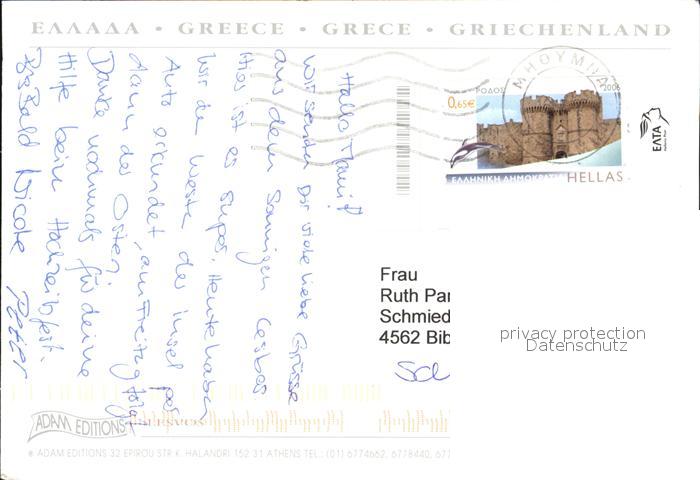 ΕΛΛΑΔΑ • GREECE • GRECE • GRIECHENLAND
Hallo Mami!
Wir senden Dir viele liebe Grüsse
aus dem sonnigen Lesbos
Hier ist es super. Heute haben
wir den Westen der Insel per
Auto erkundet, am Freitag folgt
dann der Osten.
Danke nochmals für deine
Hilfe beim Hochzeitsfest.
Bis Bald Nicole Peter
ΡΟΔΟΣ
2006
0,65€
ΕΛΛΗΝΙΚΗ ΔΗΜΟΚΡΑΤΙΑ HELLAS
ΜΗΘΥΜΝΑ
ΕΛΤΑ
Frau
Ruth Par
Schmied
4562 Bib
privacy protection
Datenschutz
ADAM EDITIONS
® ADAM EDITIONS 32 EPIROU STR K. HALANDRI 152 31 ATHENS TEL.: (01) 6774662, 6778440, 677